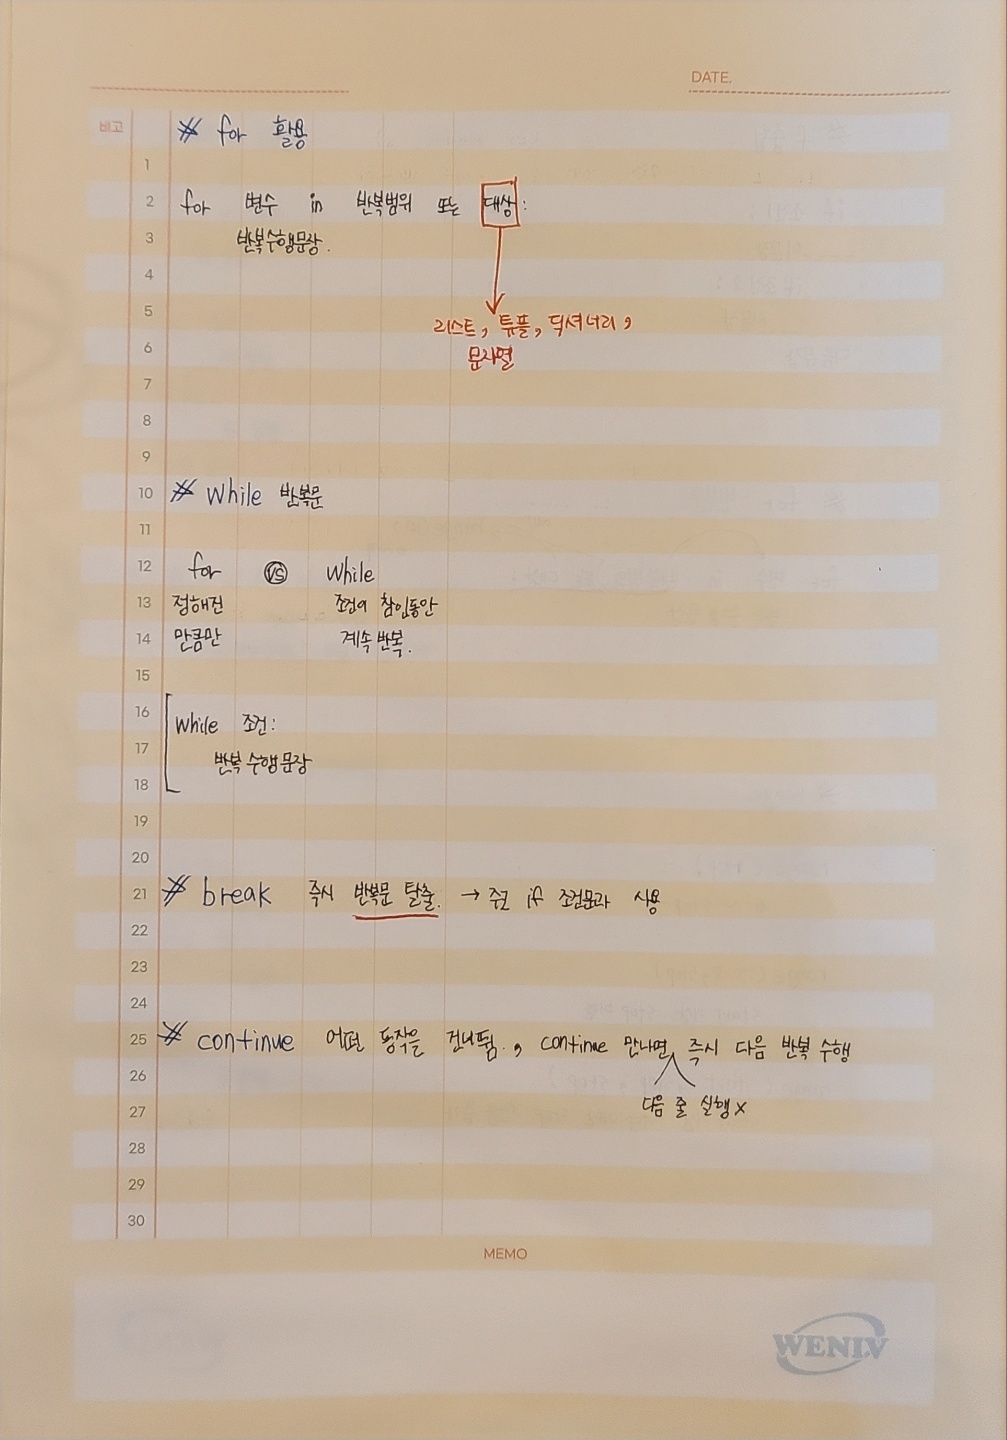 DATE.
비고
# for 활용
1
2 for 변수 in 반복범위 또는 대상:
3 반복수행문장.
4
5 리스트, 튜플, 딕셔너리,
6 문자열
7
8
9
10 # While 반복문
11
12 for VS While
13 정해진 조건이 참인동안
14 만큼만 계속 반복.
15
16 While 조건:
17 반복 수행 문장
18
19
20
21 # break 즉시 반복문 탈출. → 주로 if 조건문과 사용
22
23
24
25 # continue 어떤 동작을 건너뜀., continue 만나면 즉시 다음 반복 수행
26
27 다음 줄 실행 x
28
29
30
MEMO
WENIV